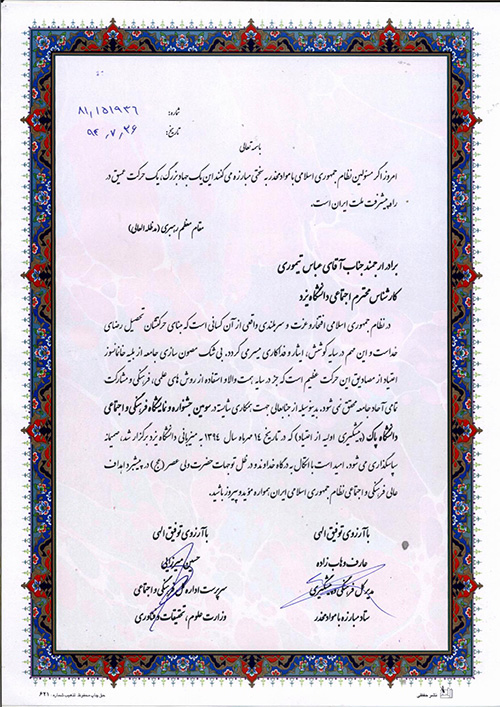 شماره: ۸۱,۱۵۱۹۳۶
تاریخ: ۹۴,۷,۲۶
باسمه تعالی
امروز اگر مسئولین نظام جمهوری اسلامی با مواد مخدر به سختی مبارزه می کنند این یک جهاد بزرگ، یک حرکت عمیق در
راه پیشرفت ملت ایران است.
مقام معظم رهبری (مدظله العالی)
برادر ارجمند جناب آقای عباس تیموری
کارشناس محترم اجتماعی دانشگاه یزد
در نظام جمهوری اسلامی افتخار و عزت و سربلندی واقعی از آن کسانی است که مبنای حرکتشان تحصیل رضای
خداست و این مهم در سایه کوشش، ایثار و فداکاری میسر می گردد. بی شک مصون سازی جامعه از بلیه خانمانسوز
اعتیاد از مصادیق این حرکت عظیم است که جز در سایه همت والا و استفاده از روش های علمی، فرهنگی و مشارکت
تمامی آحاد جامعه محقق نمی شود. بدینوسیله از جنابعالی جهت همکاری شایسته در سومین جشنواره و نمایشگاه فرهنگی و اجتماعی
دانشگاه پاک (پیشگیری اولیه از اعتیاد) که در تاریخ ۱۴ مهرماه سال ۱۳۹۴ به میزبانی دانشگاه یزد برگزار شد، صمیمانه
سپاسگذاری می شود. امید است با اتکال به درگاه خداوند و در ظل توجهات حضرت ولی عصر (عج) در پیشبرد اهداف
عالی فرهنگی و اجتماعی نظام جمهوری اسلامی ایران همواره مؤید و پیروز باشید.
با آرزوی توفیق الهی
عارف وهاب زاده
مدیر کل فرهنگی و پیشگیری
ستاد مبارزه با مواد مخدر
با آرزوی توفیق الهی
حسین میرزایی
سرپرست اداره کل فرهنگی و اجتماعی
وزارت علوم، تحقیقات و فناوری
نشر حافظی
حق چاپ محفوظ. تذهیب شماره ۶۲۱